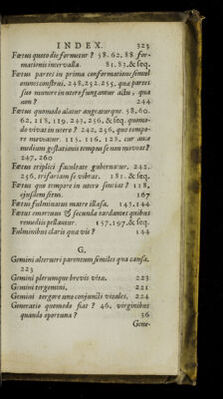 INDEX. 323
Fœtus quoto die formetur? 58. 62. 88 for-
mationis intervalla. 81. 83. & seq.
Fœtus partes in prima conformatione simul
omnes construi. 248. 252. 255, quæ partes
suo munere in utero fungantur actu, quæ
non? 244
Fœtus quomodo alatur augeaturque. 58. 60.
62. 118, 119. 243. 256. & seq. quomo-
do vivat in utero? 242. 256, quo tempo-
re moveatur. 115. 116. 128. cur ante
medium gestationis tempus se non moveat?
247. 260
Fœtus triplici facultate gubernatur. 242.
256. trifariam se vibrat. 181. & seq.
Fœtus quo tempore in utero sentiat? 118,
ejusdem situs. 167
Fœtus fulminatus matre illæsa. 143. 144
Fœtus emortuus & secunda tardantes quibus
remediis pellantur. 157. 197. & seq.
Fulminibus claris quæ vis? 144
G.
Gemini alterutri parentum similes qua causa.
223
Gemini plerumque brevis vitæ. 223
Gemini tergemini. 221
Gemini tergore uno conjuncti vitales, 224
Generatio quomodo fiat? 46. virginibus
quando oportuna? 36
Gene-